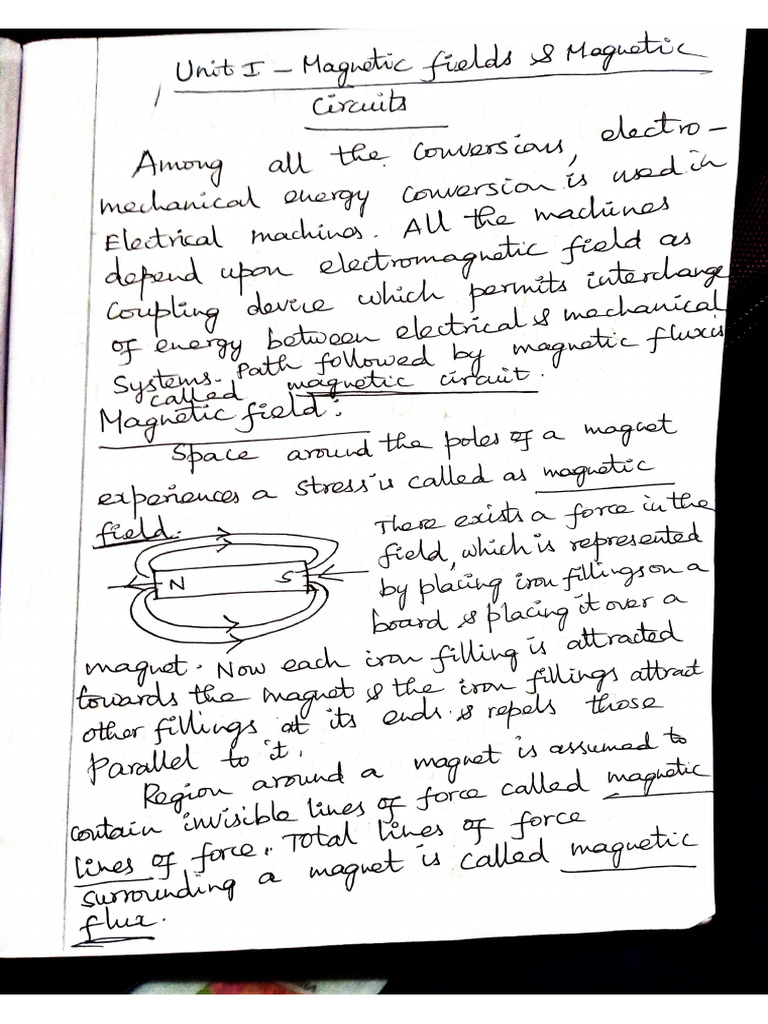 Unit I - Magnetic fields & Magnetic
Circuits
Among all the conversions, electro-
mechanical energy conversion is used in
Electrical machines. All the machines
depend upon electromagnetic field as
coupling device which permits interchange
of energy between electrical & mechanical
Systems. Path followed by magnetic flux is
called magnetic circuit.
Magnetic field:
Space around the poles of a magnet
experiences a stress is called as magnetic
field.
There exists a force in the
field, which is represented
N S
by placing iron fillings on a
board & placing it over a
magnet. Now each iron filling is attracted
towards the magnet & the iron fillings attract
other fillings at its ends & repels those
parallel to it.
Region around a magnet is assumed to
contain invisible lines of force called magnetic
lines of force. Total lines of force
surrounding a magnet is called magnetic
flux.